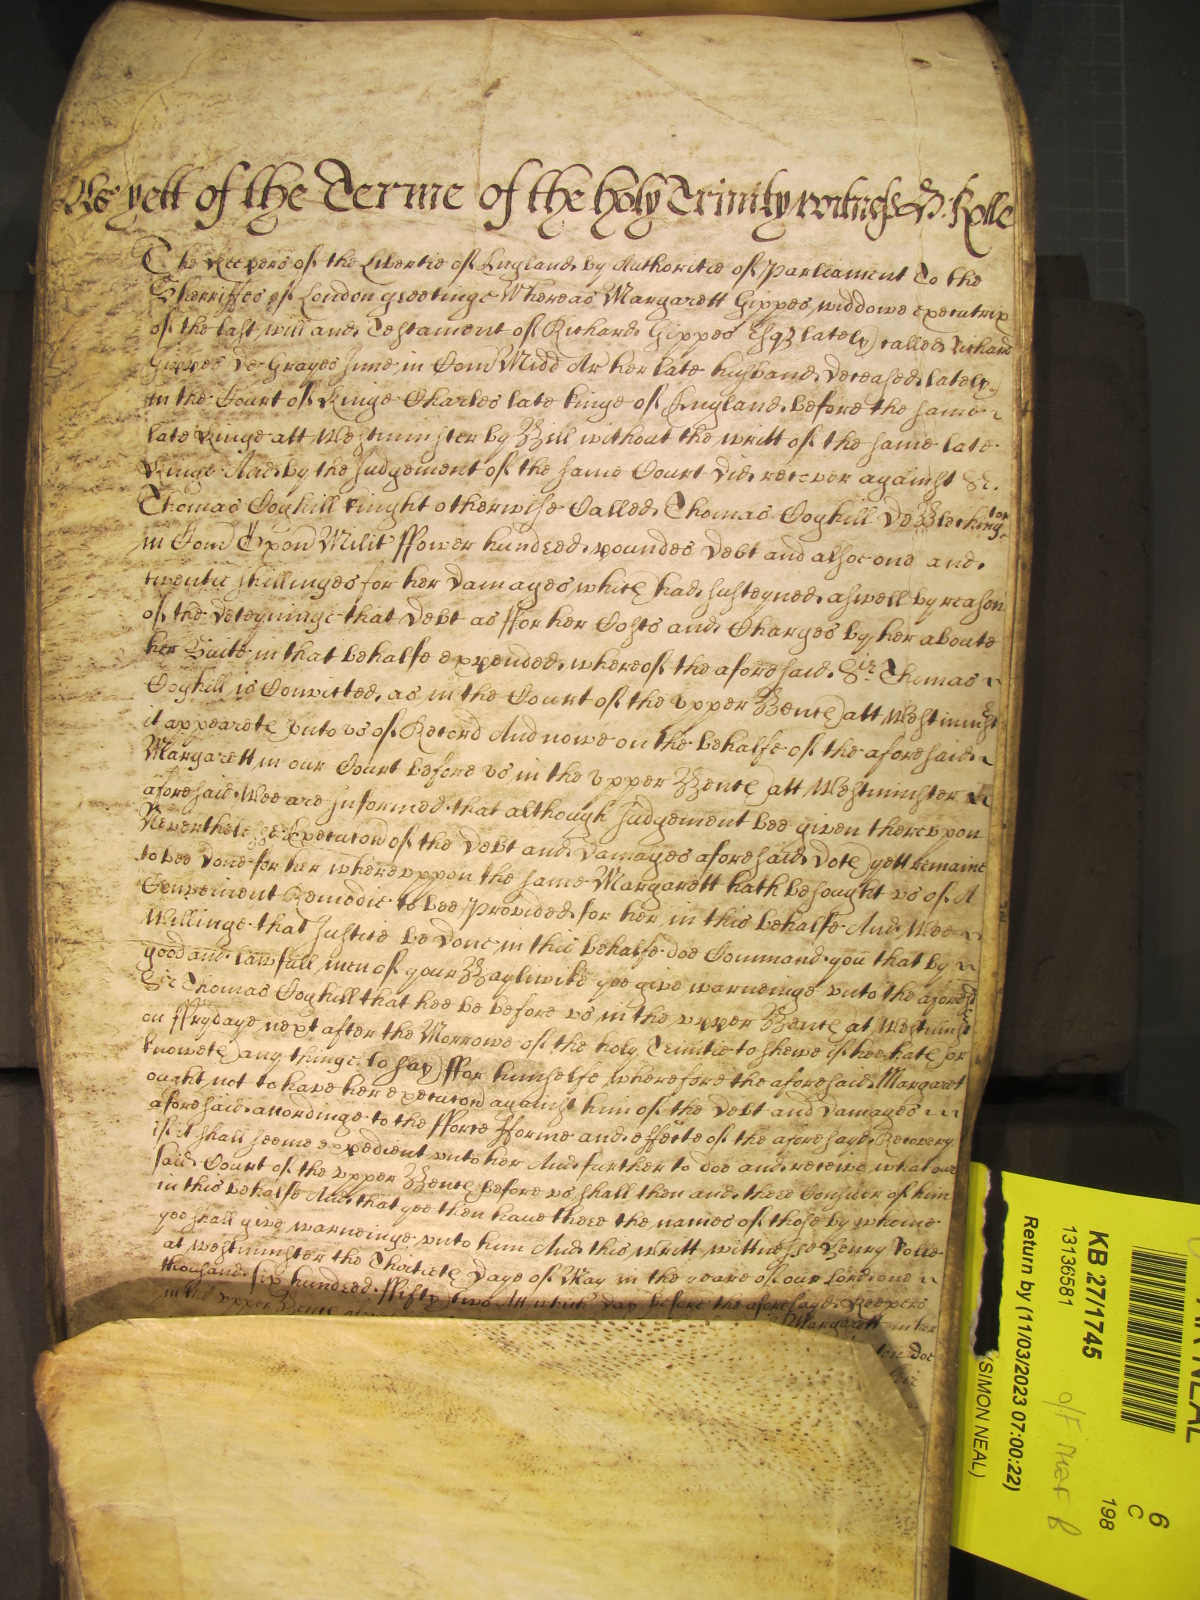 As yett of the Terme of the holy Trinity witness H. Rolle
The Keepers of the Libertie of England by Authoritie of Parliament To the
Sherriffes of London greetinge Whereas Margarett Gippes widdowe executrix
of the last will and Testament of Richard Gippes Esqr lately called Richard
Gippes de Grayes Inne in Com Midd Ar her late husband deceased lately
in the Court of Kinge Charles late kinge of England before the same
late Kinge att Westminster by Bill without the writt of the same late
Kinge And by the Judgement of the same Court did recover against Sr.
Thomas Coghill knight otherwise Called Thomas Coghill de Bleckington
in Com Oxon Milit ffower hundred poundes debt and alsoe one and
twentie shillinges for her damages which shee had susteyned aswell by reason
of the deteyninge that debt as ffor her Costs and Charges by her aboute
her Suite in that behalfe expended whereof the aforesaid Sir Thomas
Coghill is Convicted as in the Court of the upper Bench att Westminster
it appeareth unto us of Record And nowe on the behalfe of the aforesaid
Margarett in our Court before us in the upper Bench att Westminster
aforesaid Wee are informed that although Judgement bee given thereupon
Neverthelesse Execucion of the debt and damages aforesaid doth yett remaine
to bee done for her whereuppon the same Margarett hath besought us of A
Convenient Remedie to bee Provided for her in this behalfe And Wee
Willinge that Justice be done in this behalfe doe Command you that by
good and lawfull men of your Baylewike yee give warneinge unto the aforesaid
Sir Thomas Coghill that hee be before us in the upper Bench at Westminster
on ffrydaye next after the Morrowe of the holy Trinitie to shewe if hee hath or
knoweth any thinge to say ffor himselfe wherefore the aforesaid Margaret
ought not to have her execucion against him of the debt and damages
aforesaid accordinge to the fforce fforme and effecte of the aforesayd Recovery
if it shall seeme expedient unto her And further to doe and receive what our
said Court of the upper Bench before us shall then and there Consider of him
in this behalfe And that yee then have there the names of those by whome
yee shall give warneinge unto him And this writt wittnesse Henry Rolle
at westminster the Thirtieth daye of May in the yeare of our Lord one
thousand six hundred ffifty two Att which day before the aforesayd Keepers
in the upper Bench
Margarett in her
doe
KB 27/1745
13136581
Return by (11/03/2023 07:00:22)
(SIMON NEAL)
6
C
198